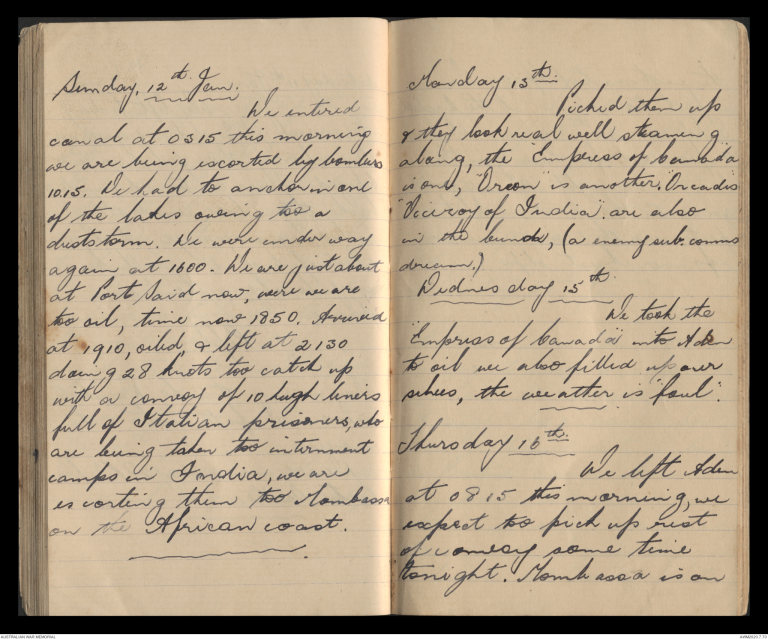 Sunday, 12th Jan.
We entired
canal at 0315 this morning
we are being escorted by bombers
10.15. We had to anchor in one
of the lakes owing too a
duststorm. We were under way
again at 1600. We are just about
at Port Said now, were we are
too oil, time now 1850. Arrived
at 1910, oiled, & left at 2130
doing 28 knots too catch up
with a convoy of 10 hugh liners
full of Italian prisoners, who
are being taken too internment
camps in India, we are
escorting them too Mombassa
on the African coast.
Monday 13th.
Picked them up
& they look real well steaming
along, the "Empress of Canada"
is one, "Orion" is another, "Orcadis"
"Viceroy of India". are also
in the bunch, (a enemy sub. comms
dream.)
Wednesday 15th.
We took the
"Empress of Canada" into Aden
to oil we also filled up our
selves, the weather is "foul".
Thursday 16th.
We left Aden
at 0815 this morning, we
expect too pick up rest
of convoy some time
tonight. Mombassa is on
AUSTRALIAN WAR MEMORIAL